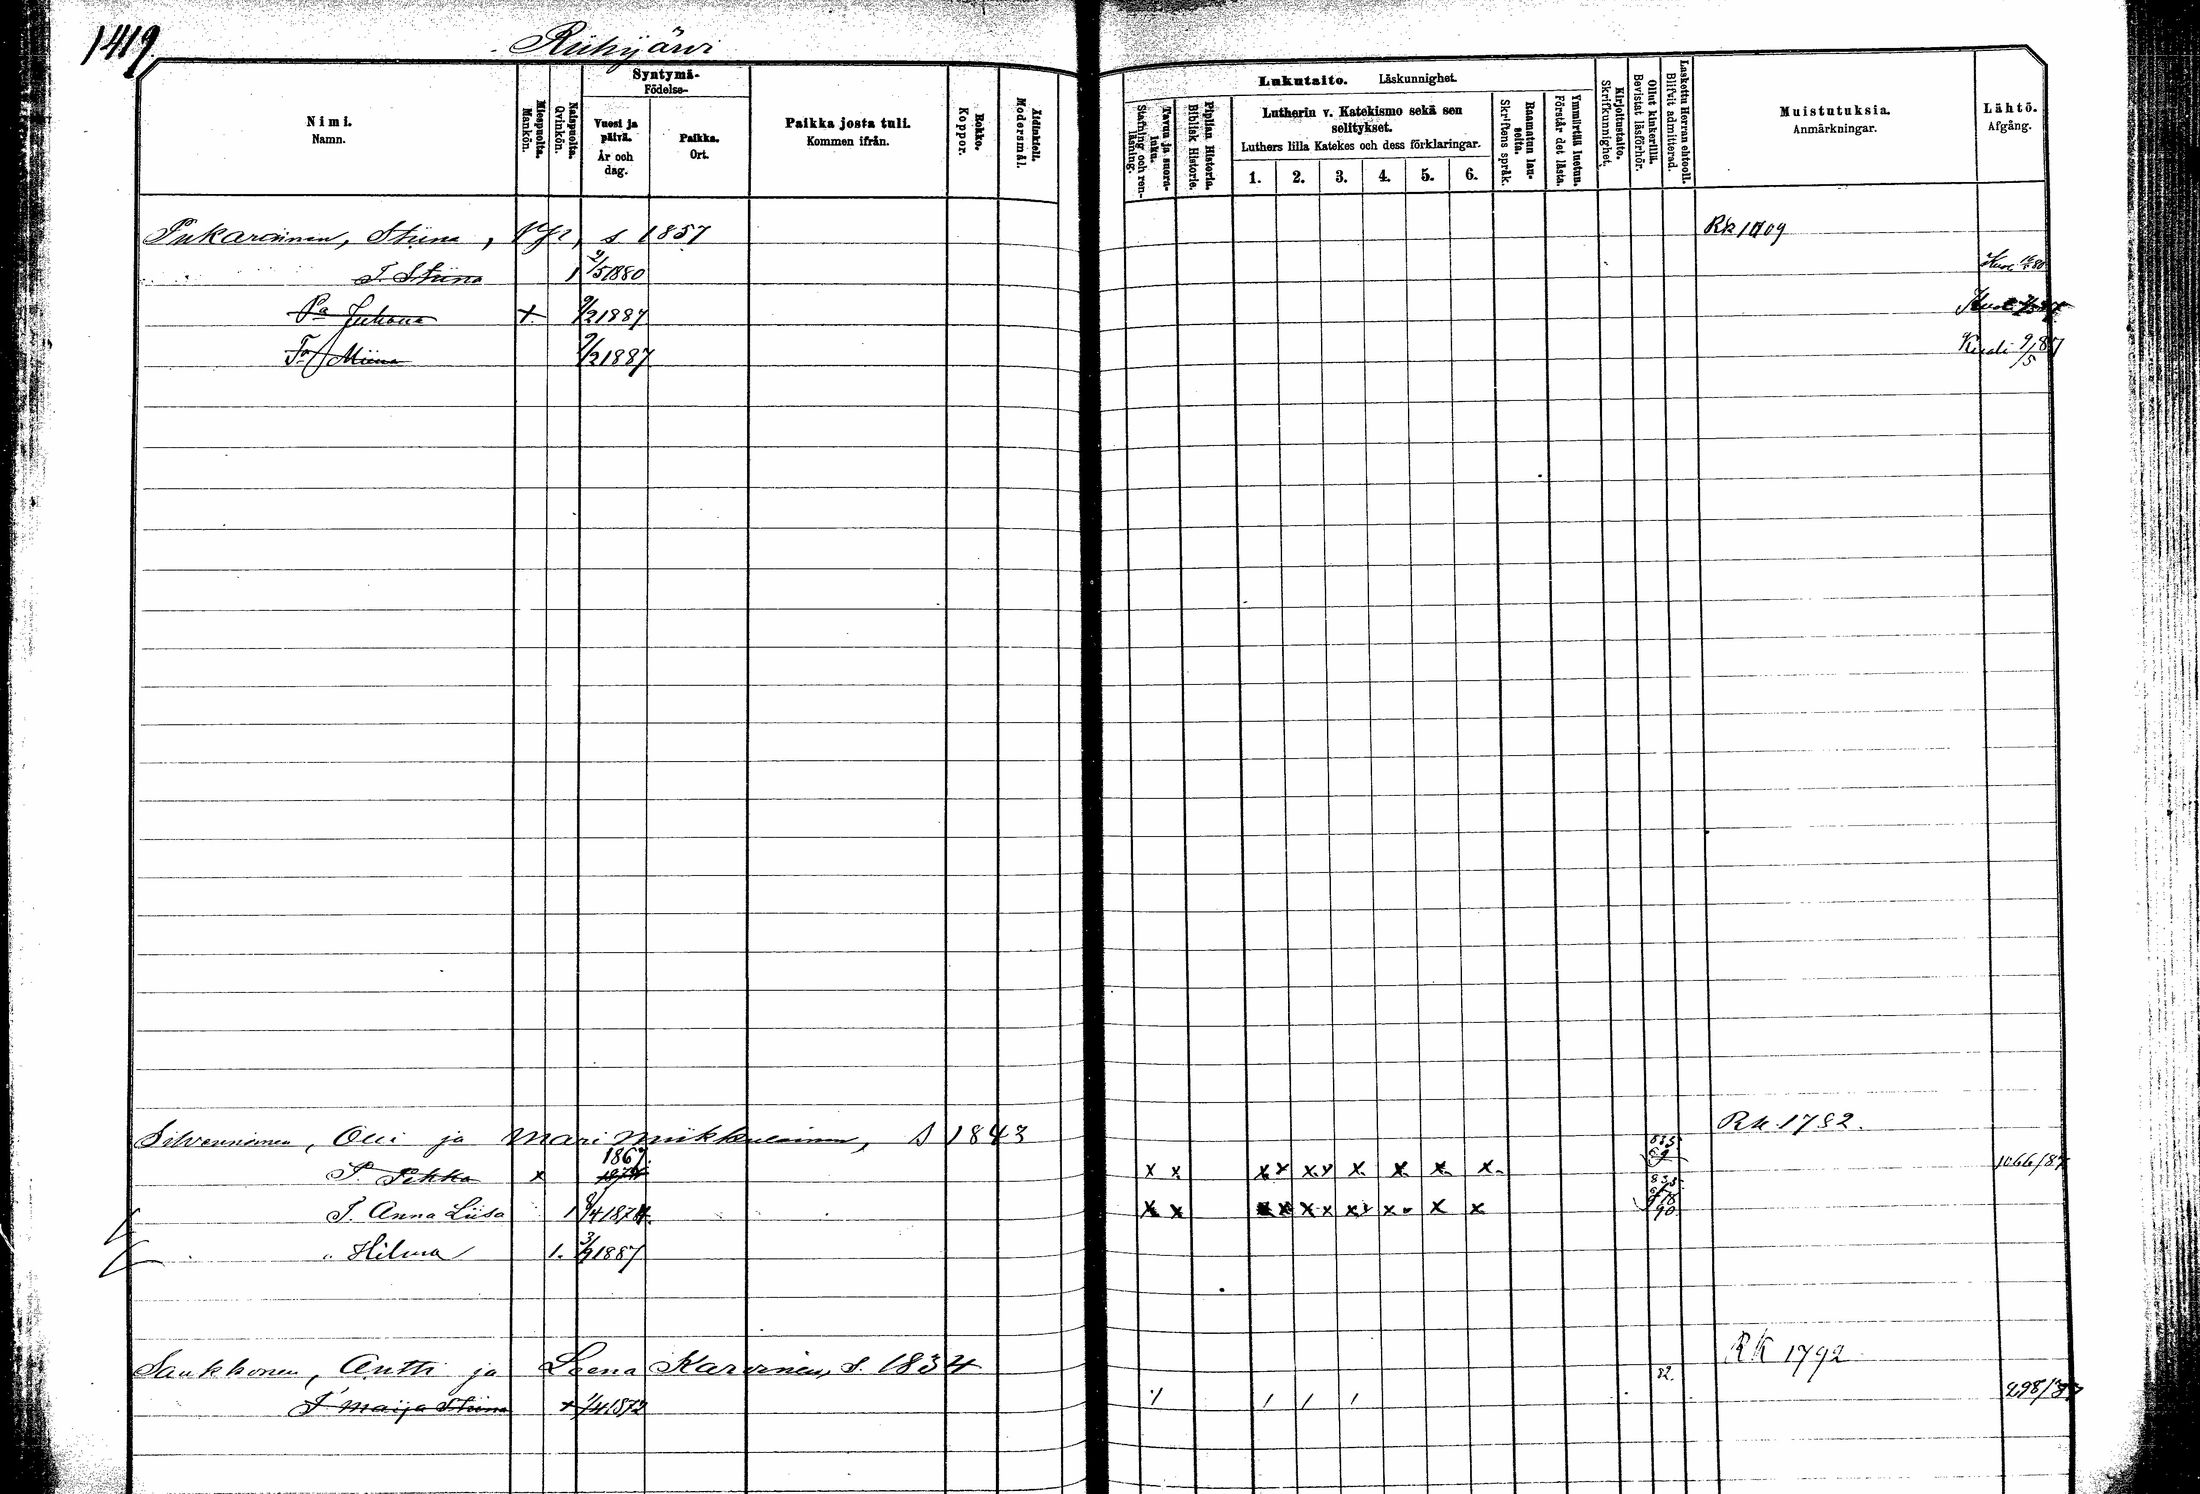 1419.
Riihijärvi
Nimi.
Namn.
Miespuolta.
Mankön.
Naispuolta.
Qvinkön.
Syntymä-
Födelse-
Vuosi ja päivä.
År och dag.
Paikka.
Ort.
Paikka josta tuli.
Kommen ifrån.
Rokko.
Koppor.
Äidinkieli.
Modersmål.
Lukutaito. Läskunnighet.
Tavuu ja suora-luku.
Stafning och ren-läsning.
Piplian Historia.
Biblisk Historie.
Lutherin v. Katekismo sekä sen
selitykset.
Luthers lilla Katekes och dess förklaringar.
1. 2. 3. 4. 5. 6.
Raamatun lau-seita.
Skriftens språk.
Ymmärtää luetun.
Förstår det lästa.
Kirjoitustaito.
Skrifkunnighet.
Ollut kinkerillä.
Bevistat läsförhör.
Laskettu Herran ehtooll.
Blifvit admitterad.
Muistutuksia.
Anmärkningar.
Lähtö.
Afgång.
Pukarinen, Stiina, s 1857 Rk 1709
T. Stiina 1 2/5 1880
Pa Juhana + 9/2 1887
Ta Miina 9/2 1887 Kuoli 9/5 87
Silvennoinen, Olli ja Mari Miikkulainen, s 1843 Rk. 1782.
P. Pekka x 1867 x x x x x x x x x x 1066/87
T. Anna Liisa 1 8/4 1874 x x x x x x x x x x 90
" Hilma 1. 3/2 1887
Saukkonen, Antti ja Leena Karvinen, s. 1834 RK 1792
T Maija Stiina + 1/4 1872 / / / / 82. 898/87